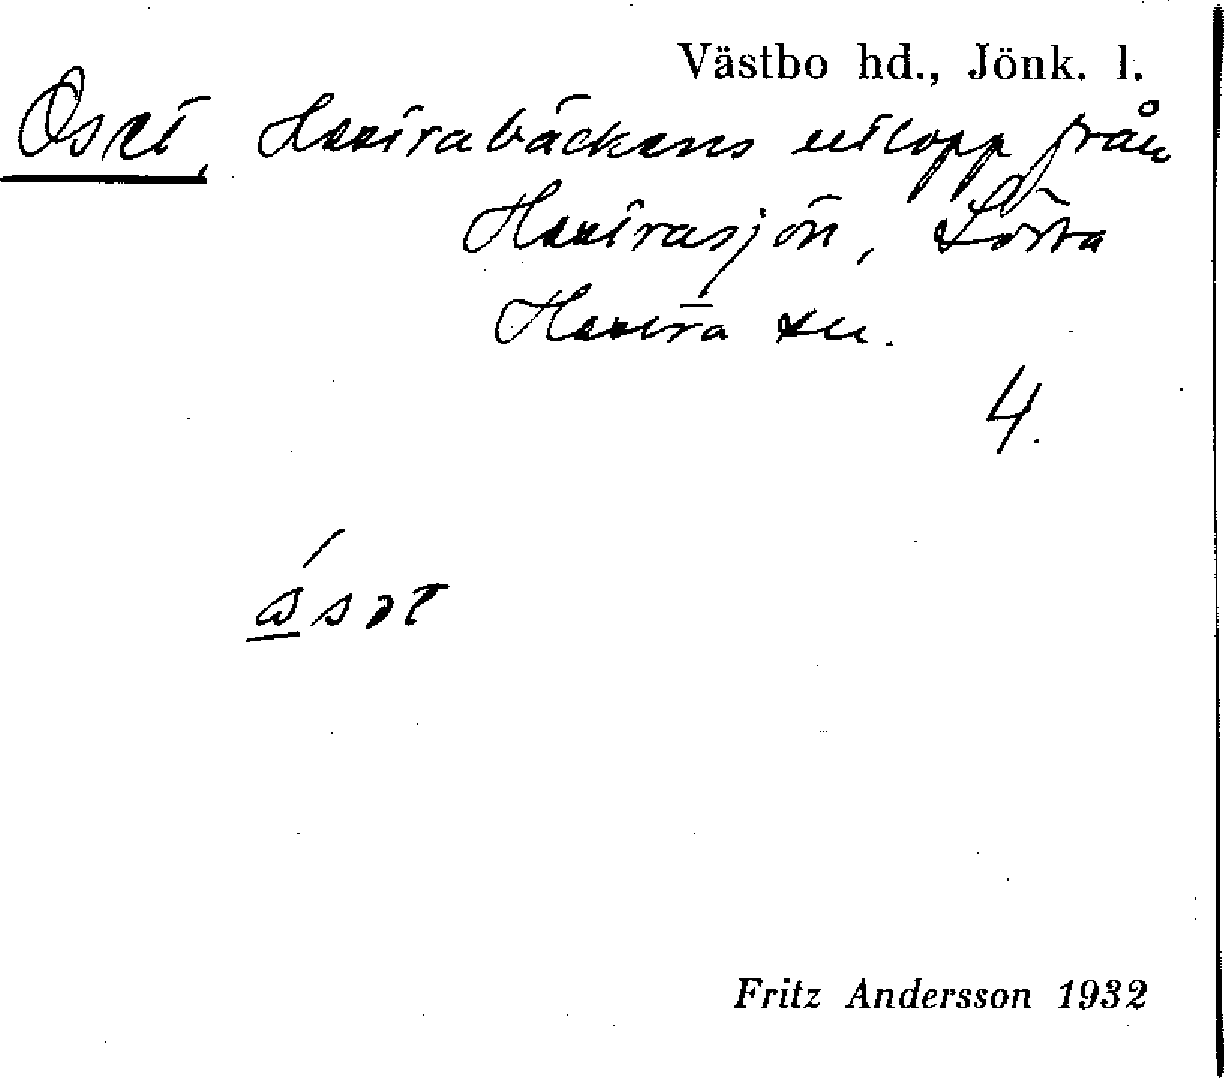 Västbo hd., Jönk. l.
Oset, Hestrabäckens utlopp från
Hestrasjön, Södra
Hestra sn.
4.
Fritz Andersson 1932